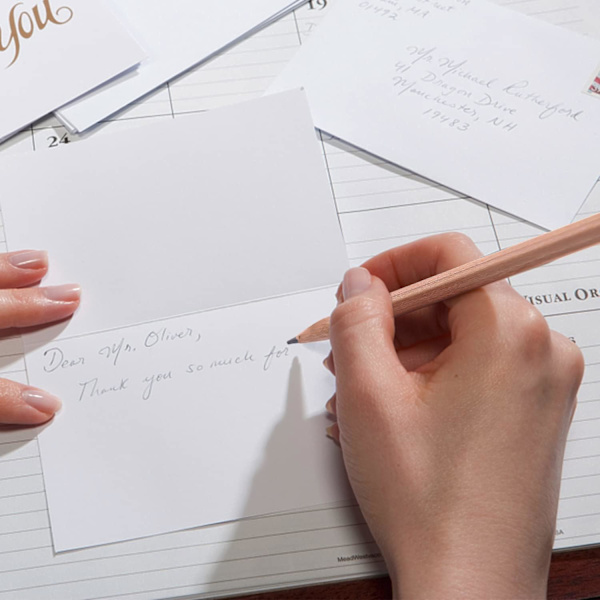 You
19
01992
Mr. Michael Rutherford
41 Dragon Drive
Manchester, NH
19483
24
VISUAL OR
Dear Mr. Oliver,
Thank you so much for